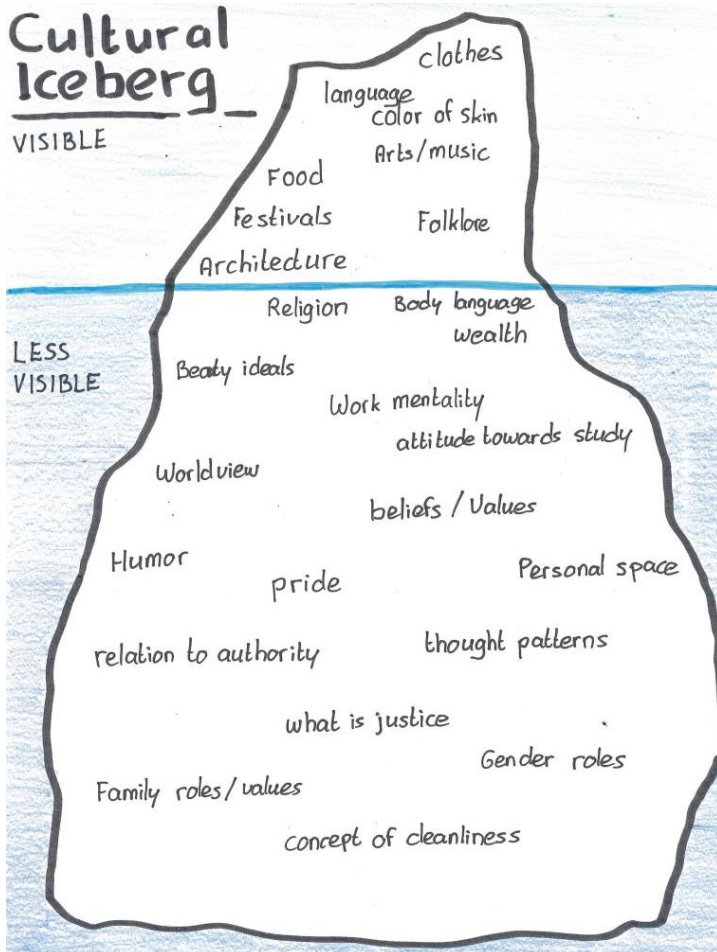 Cultural
Iceberg
VISIBLE
clothes
language
color of skin
Arts/music
Food
Festivals
Folklore
Architecture
Religion
Body language
wealth
LESS
VISIBLE
Beaty ideals
Work mentality
attitude towards study
Worldview
beliefs / Values
Humor
pride
Personal space
relation to authority
thought patterns
what is justice
Gender roles
Family roles/values
concept of cleanliness